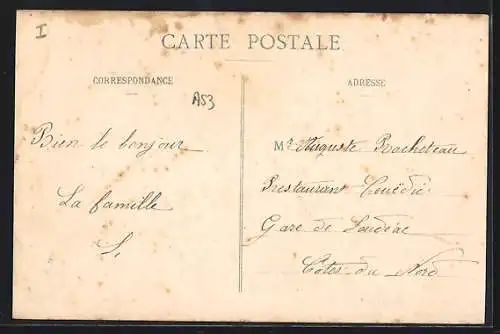 I
CARTE POSTALE
CORRESPONDANCE
ADRESSE
A53
Bien le bonjour
La famille
L.
Mr Auguste Rocheteau
Restaurant Couëdic
Gare de Loudéac
Côtes-du-Nord